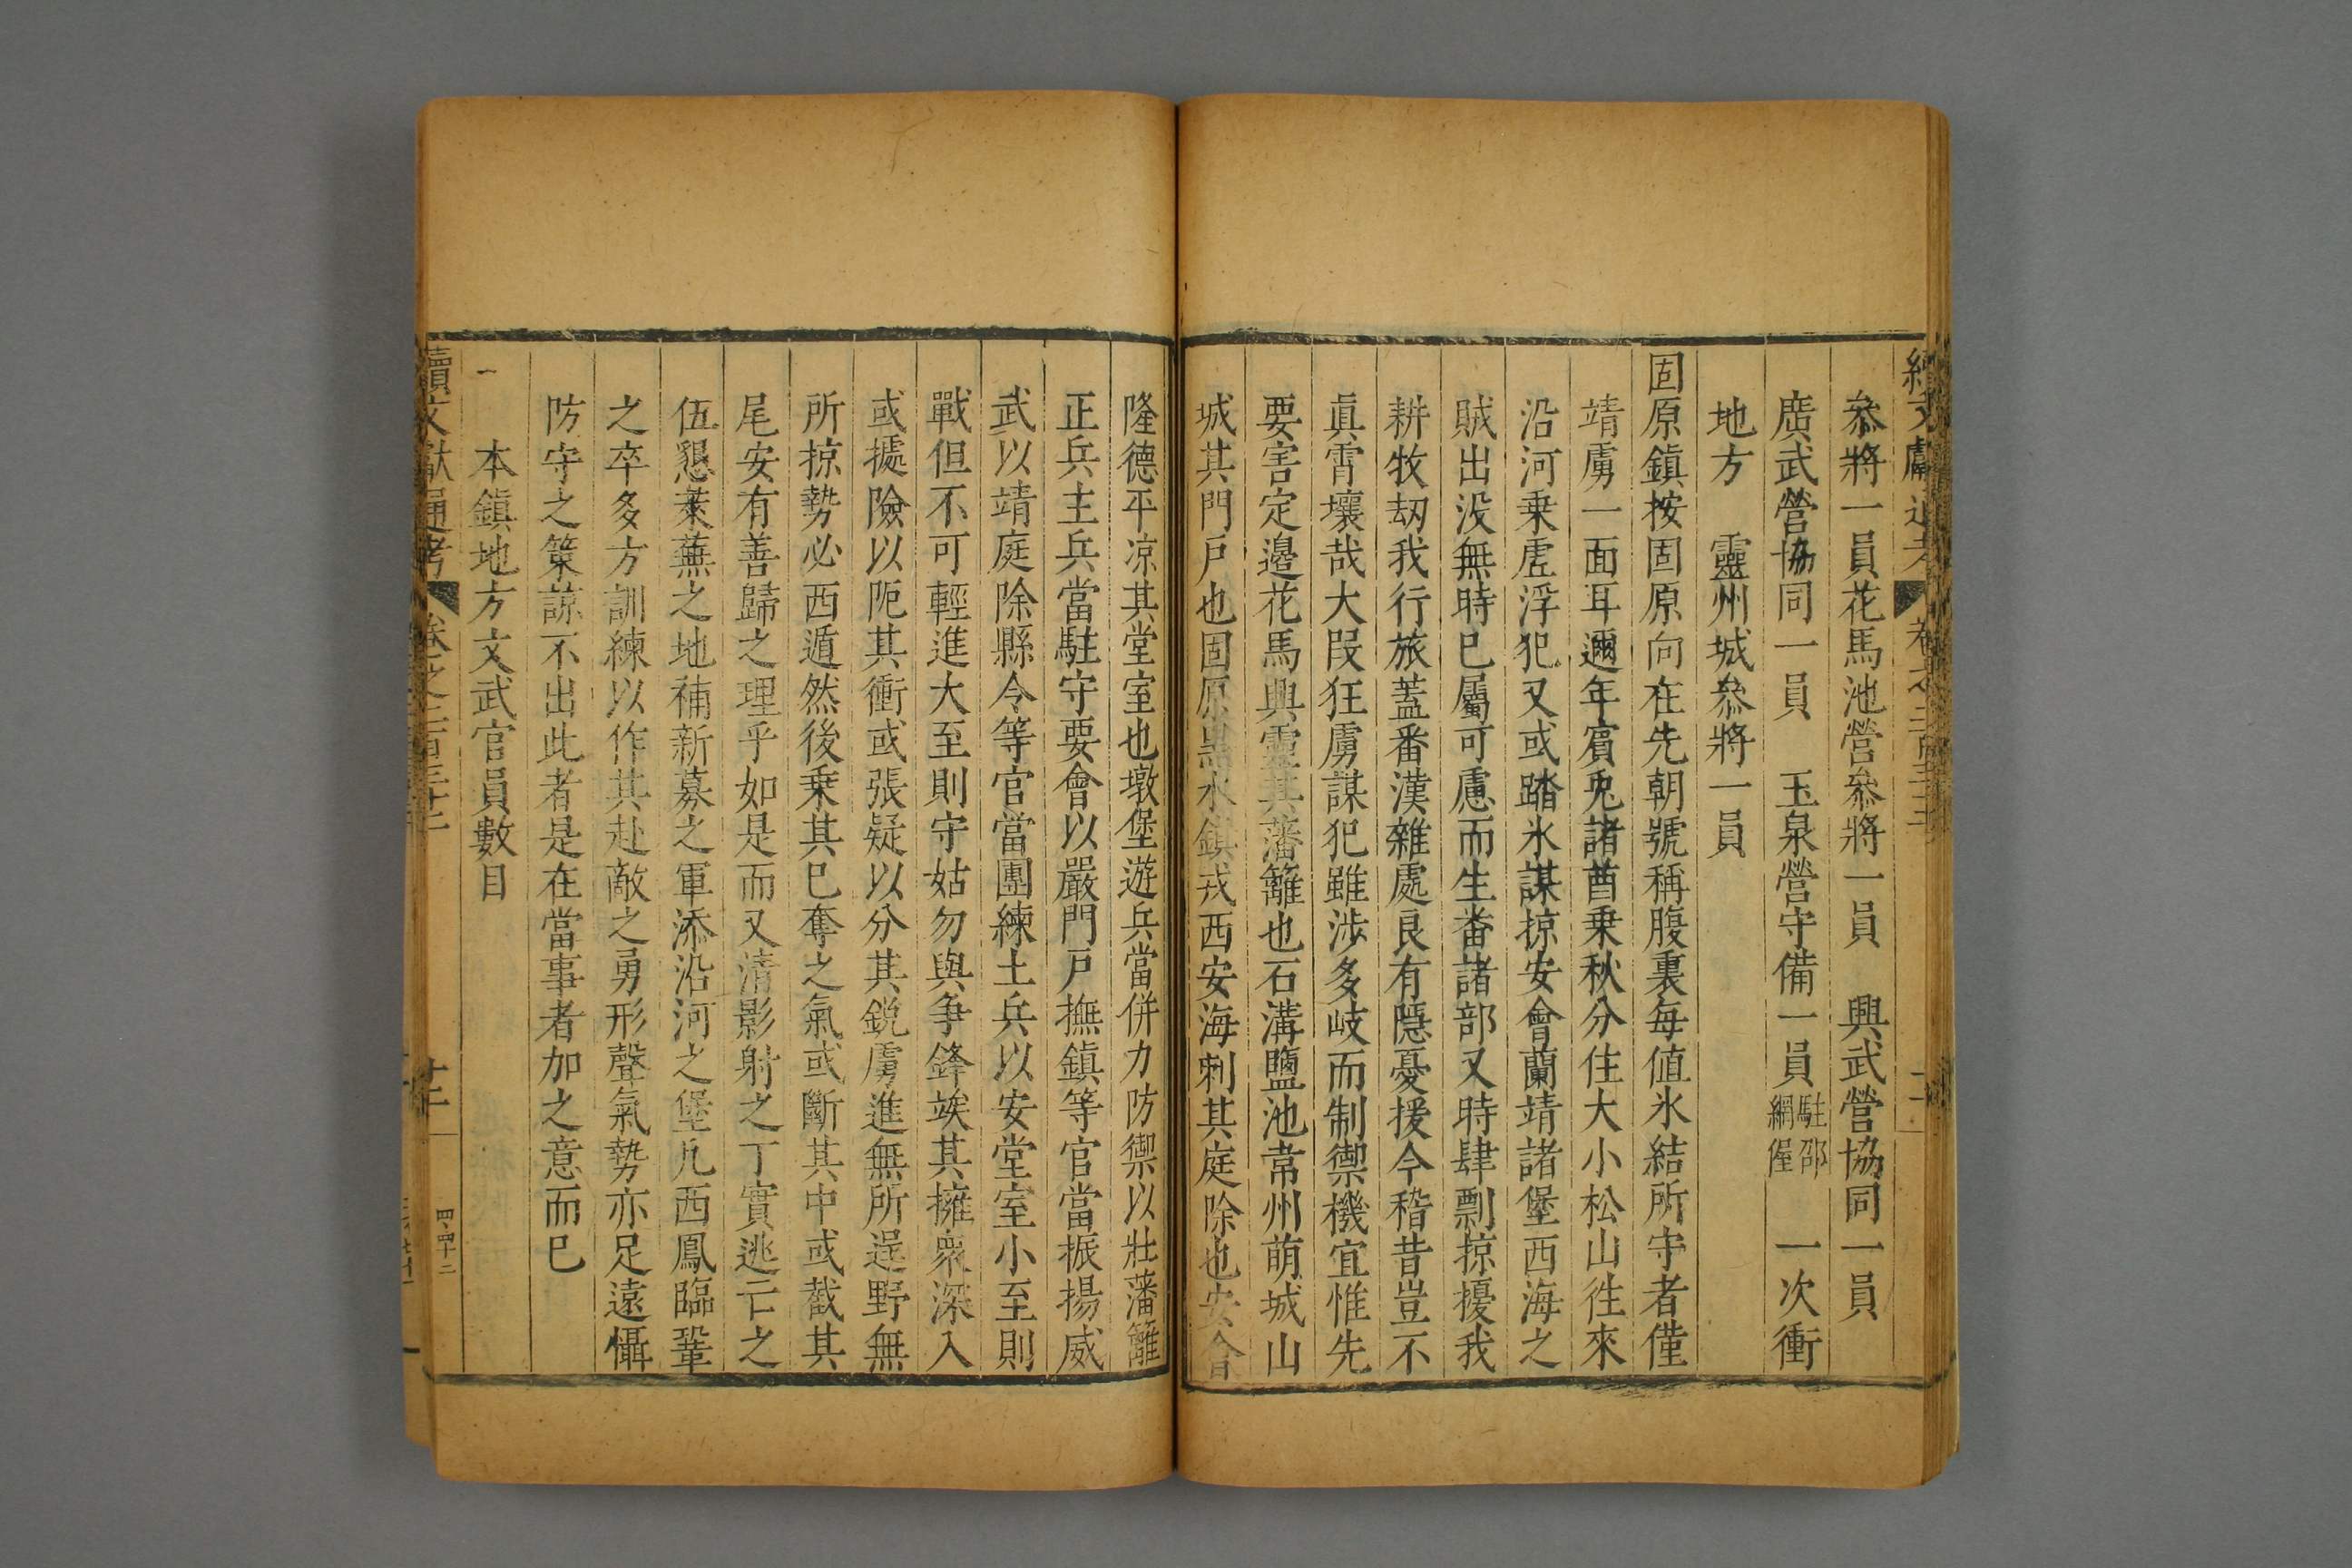 叅將一員花馬池營叅將一員　興武營協同一員
廣武營協同一員　玉泉營守備一員駐邵綱偓　一次衝
地方　靈州城叅將一員
固原鎮按固原向在先朝號稱腹裏每值氷結所守者僅
靖虜一面耳邇年賔兎諸酋乗秋分住大小松山徃來
沿河乗虗浮犯又或踏氷謀掠安會蘭靖諸堡西海之
賊出没無時巳屬可慮而生番諸部又時肆剽掠擾我
耕牧刼我行旅蓋番漢雜處良有隱憂援今稽昔豈不
眞霄壤哉大叚狂虜謀犯雖涉多岐而制禦機宜惟先
要害定邊花馬興靈其藩籬也石溝鹽池韋州萌城山
城其門戸也固原黑水鎮戎西安海剌其庭除也安會
隆德平凉其堂室也墩堡遊兵當併力防禦以壯藩籬
正兵主兵當駐守要會以嚴門戸撫鎮等官當振揚威
武以靖庭除縣令等官當團練土兵以安堂室小至則
戰但不可輕進大至則守姑勿與争鋒竢其擁衆深入
或㨿險以阨其衝或張疑以分其鋭虜進無所逞野無
所掠勢必西遁然後乗其巳奪之氣或斷其中或截其
尾安有善歸之理乎如是而又清影射之丁實逃亡之
伍懇萊蕪之地補新募之軍添沿河之堡凢西鳳臨鞏
之卒多方訓練以作其赴敵之勇形聲氣勢亦足遠懾
防守之策諒不出此者是在當事者加之意而巳
一　本鎮地方文武官員數目
續文獻通考　卷之二百三十二　廿二　四四十二